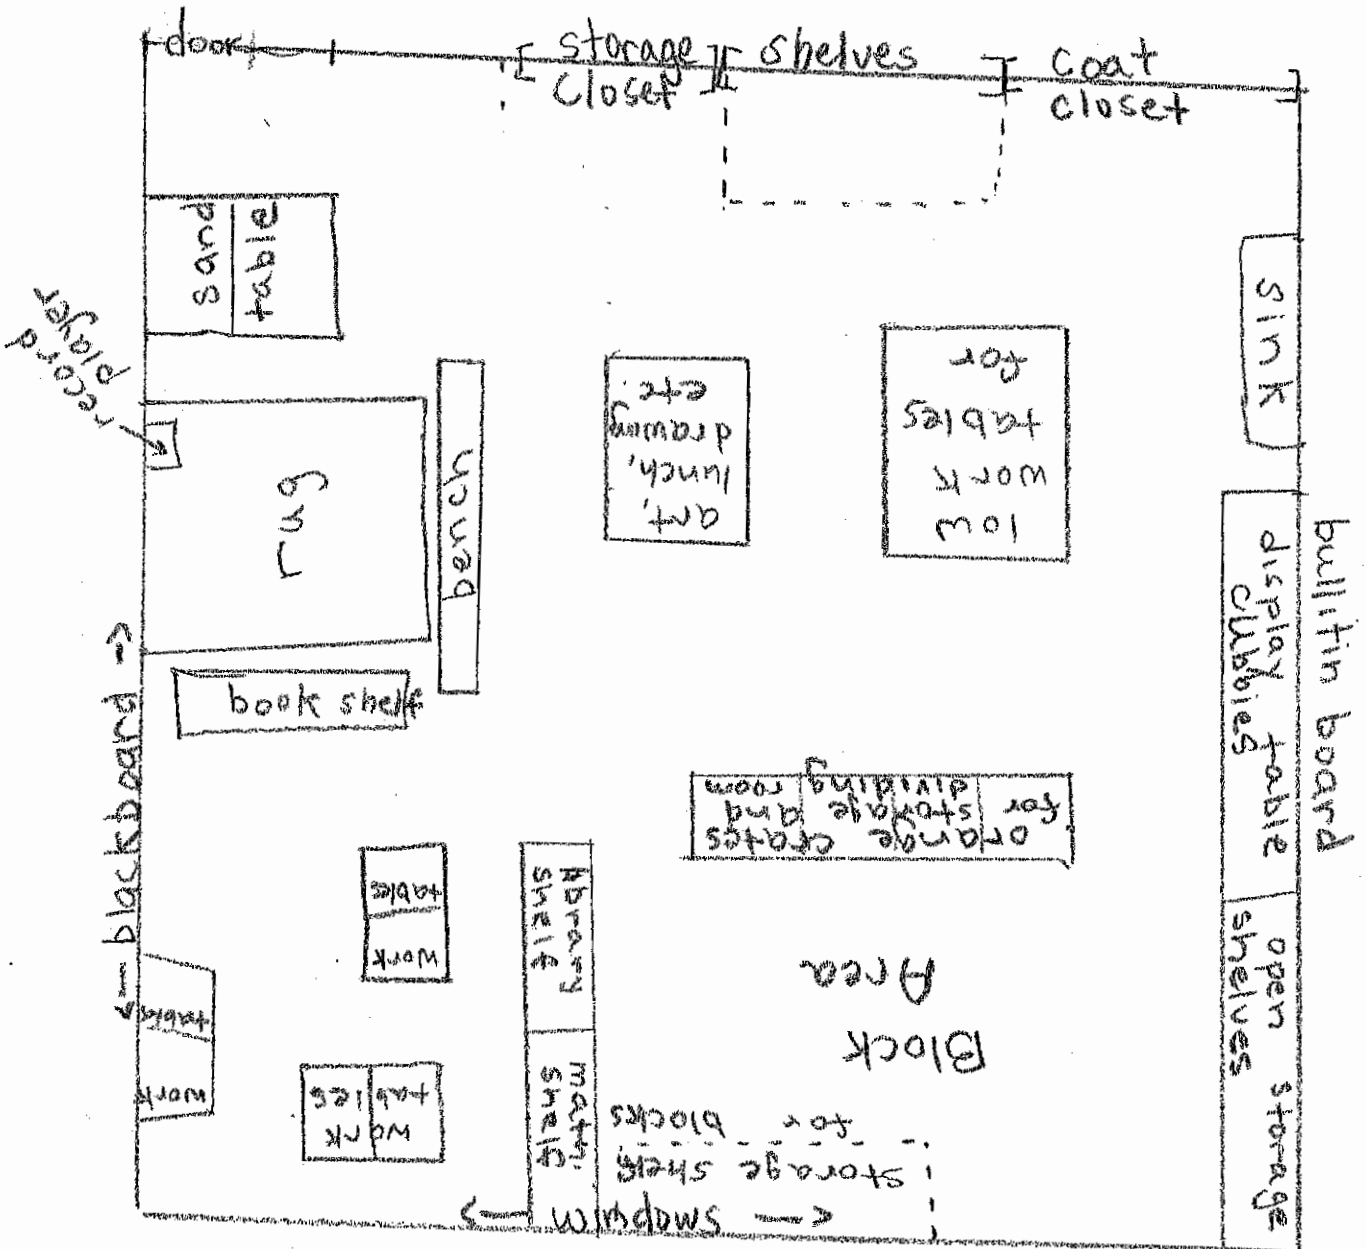 door
storage
closet
shelves
coat
closet
sand
table
record
player
rug
bench
art,
lunch,
drawing
etc.
low
work
tables
for
sink
bullitin board
display table
cubbies
book shelf
<- blackboard ->
orange crates
for storage and
dividing room
work
tables
library
shelf
Block
Area
open storage
shelves
work
tables
work
tables
math
shelf
storage shelf
for blocks
<- windows ->